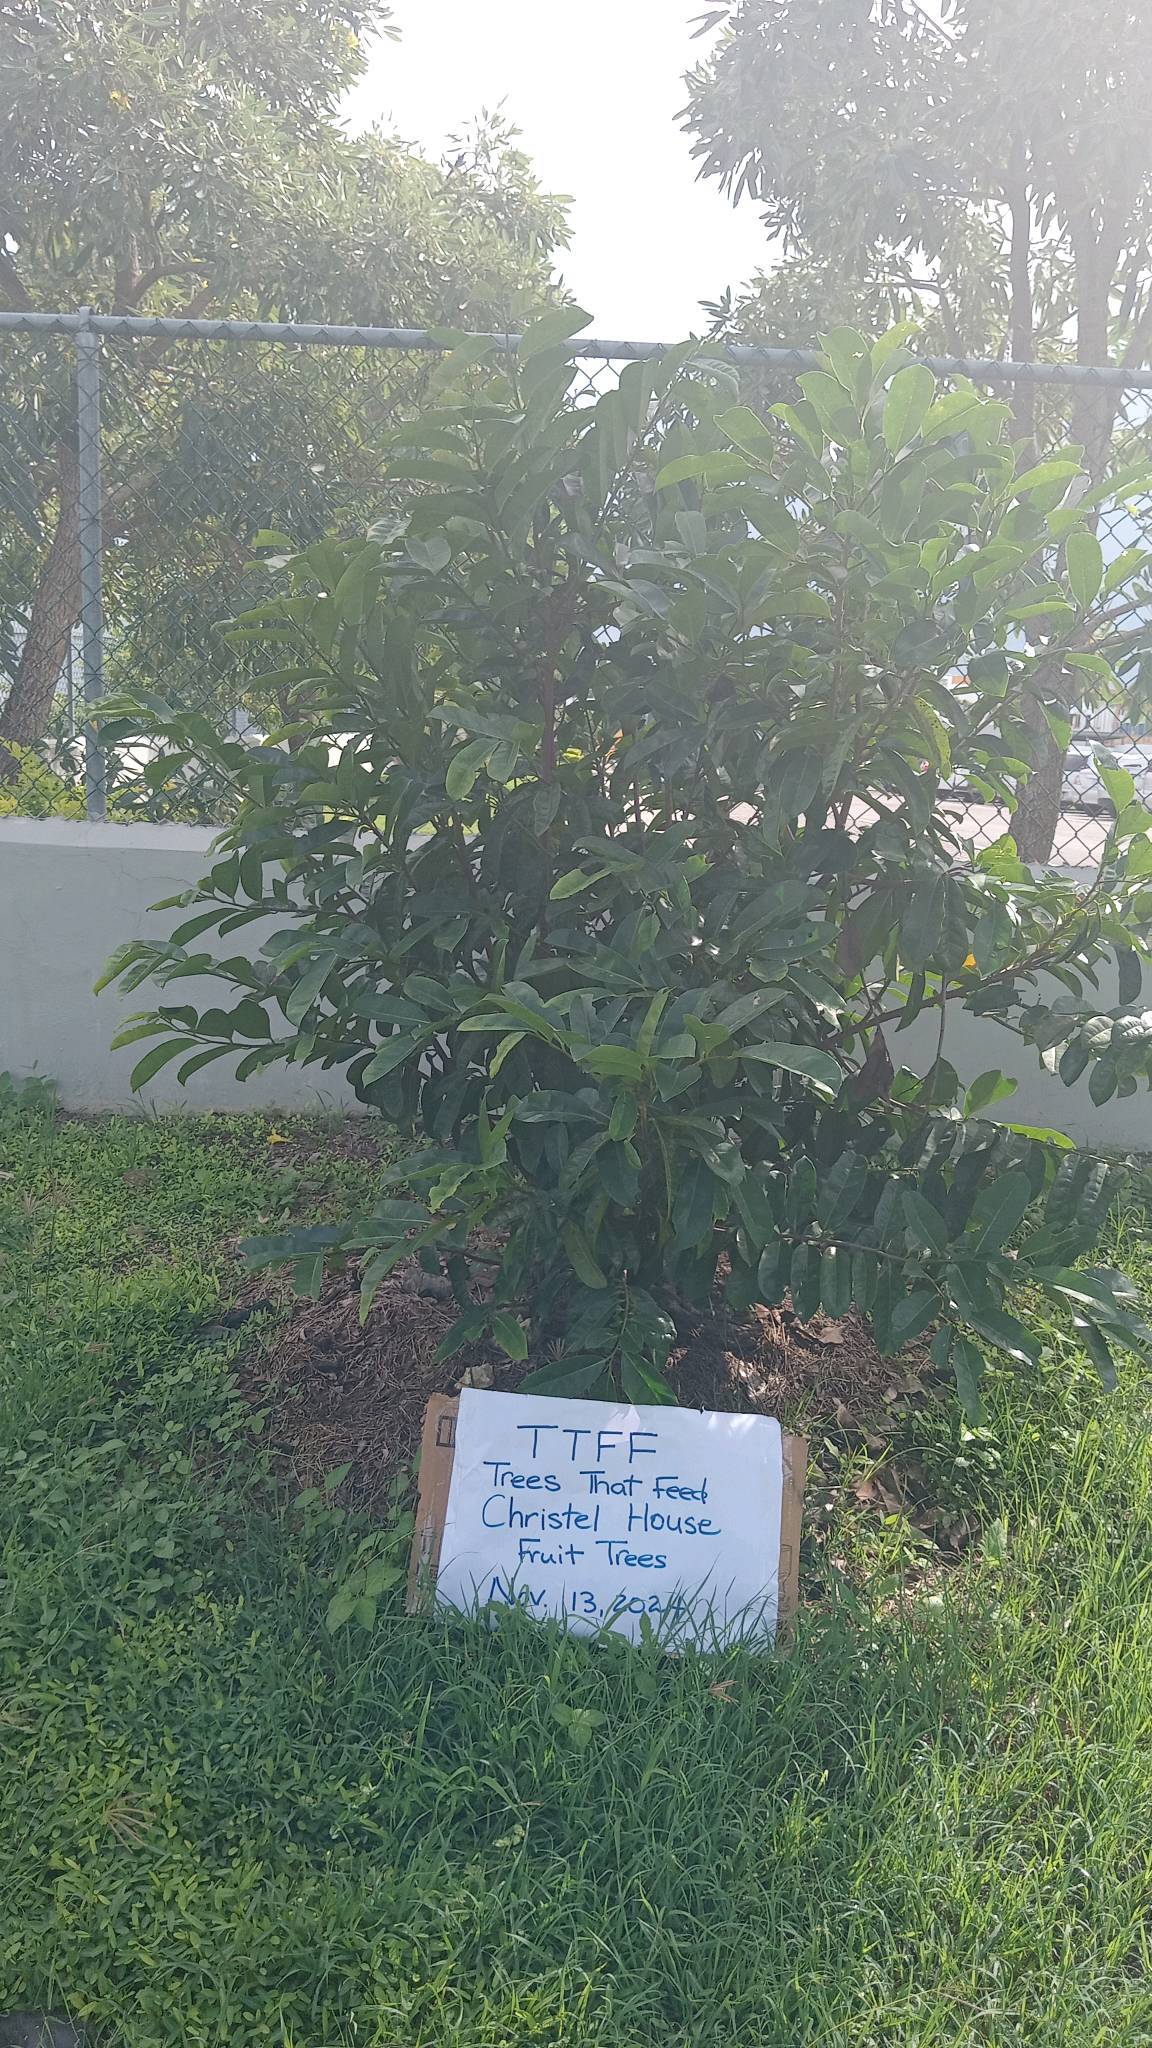 TTFF
Trees That Feed
Christel House
Fruit Trees
Nov. 13, 2024